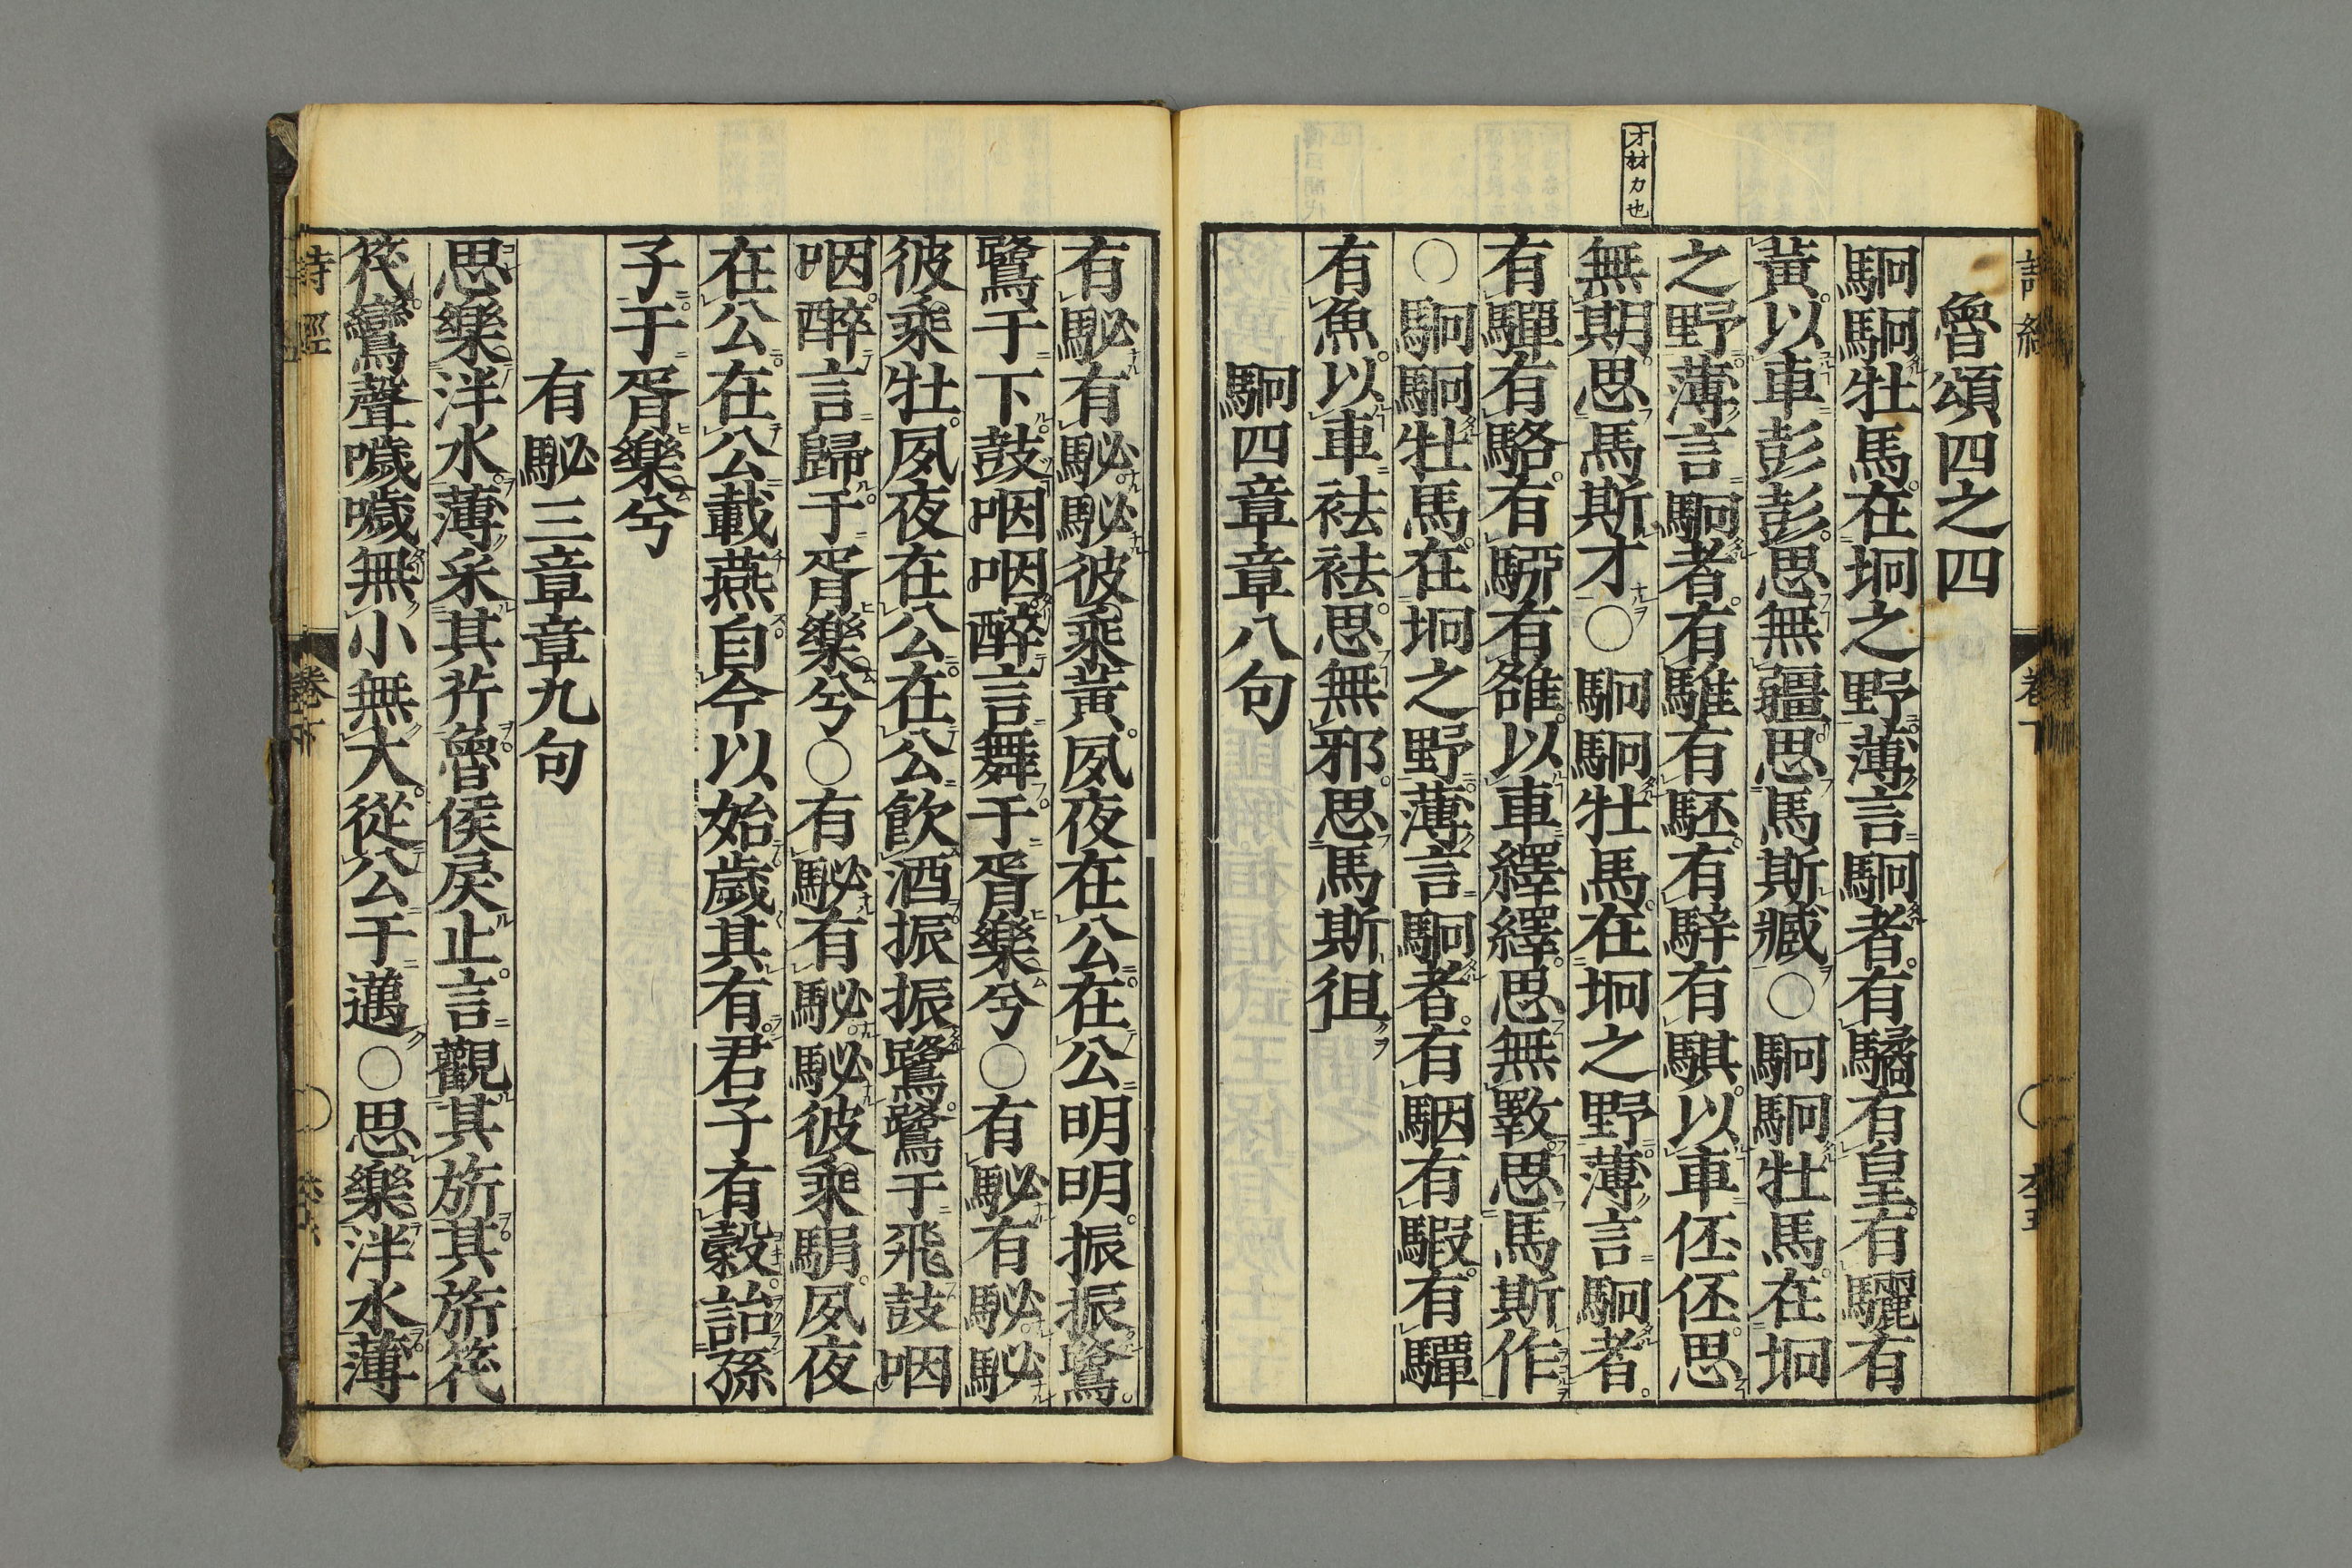 才材力也
魯頌四之四
駉駉牡馬在坰之野薄言駉者有驈有皇有驪有
黃以車彭彭思無疆思馬斯臧○駉駉牡馬在坰
之野薄言駉者有騅有駓有騂有騏以車伾伾思
無期思馬斯才○駉駉牡馬在坰之野薄言駉者
有驒有駱有駵有雒以車繹繹思無斁思馬斯作
○駉駉牡馬在坰之野薄言駉者有駰有騢有驔
有魚以車祛祛思無邪思馬斯徂
駉四章章八句
有駜有駜駜彼乘黃夙夜在公在公明明振振鷺
鷺于下鼓咽咽醉言舞于胥樂兮○有駜有駜駜
彼乘牡夙夜在公在公飲酒振振鷺鷺于飛鼓咽
咽醉言歸于胥樂兮○有駜有駜駜彼乘駽夙夜
在公在公載燕自今以始歲其有君子有穀詒孫
子于胥樂兮
有駜三章章九句
思樂泮水薄采其芹魯侯戾止言觀其旂其旂筏
筏鸞聲噦噦無小無大從公于邁○思樂泮水薄
詩經 卷下